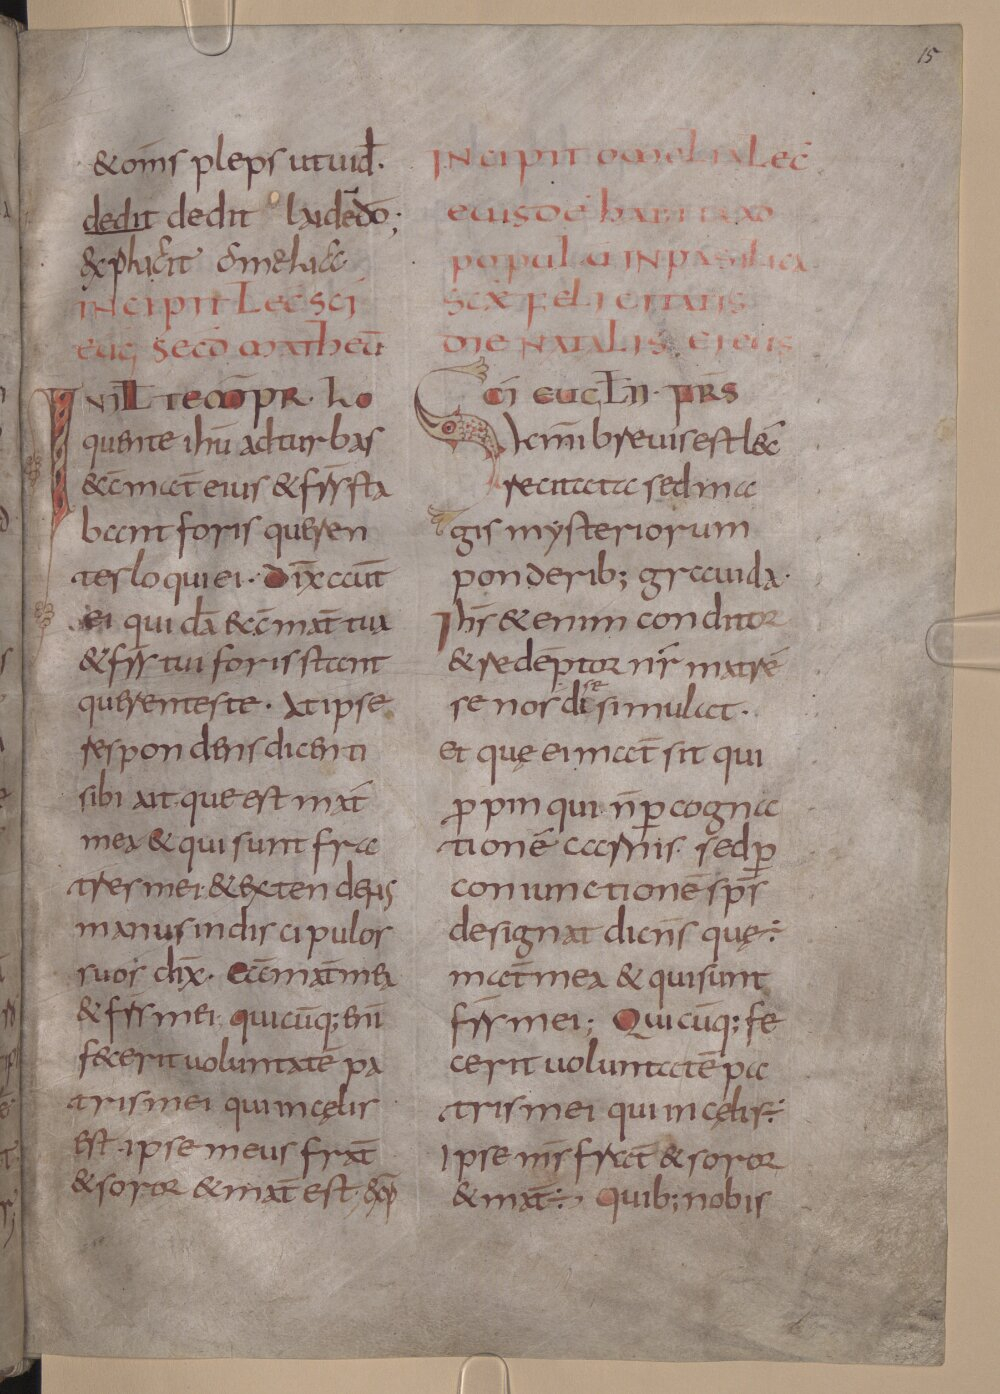 15
& om̄s pleps ut uid̄·
dedit dedit laidem̄ dō;
explicit omelia
INCIPIT LEC̄ SC̄I
EUḠ SEC̄D MATHEŪ
IN ILL TEMPR· lo
quente ihū ad turbas
ecc̄ mat̄ eius & frr̄ sta
bant foris queren
tes loqui ei· Dix̄ aut̄
ei quidā ecc̄ mat̄ tua
& frr̄ tui foris stant
querentes te· At ipse
respondens dicenti
sibi ait· que est mat̄
mea & qui sunt fra
tres mei· & extendens
manus in discipulos
suos dix̄· Ecc̄ mat̄ mea
& frr̄ mei· quicūq; eni
fecerit uoluntatē pa
tris mei qui in cęlis
est· ipse meus frat̄
& soror & mat̄ est· exp̄
INCIPIT OMELIA LEC̄
EIUSDĒ HABITA AD
POPULŪ IN PASILICA
SC̄Ę FELICITATIS
DIE NATALIS EIEUS
SCI EUGLII· FRS
km̄i breuis est lec̄
recitata sed ma
gis mysteriorum
ponderib; grauida·
Ihs̄ & enim conditor
& redēptor nr̄ matrē
se nos disesimulat·
Et quę ei mat̄ sit qui
ꝓpin qui n̄ ꝑ cogna
tionē carnis· sed ꝑ
coniunctionē sp̄s
designat dicns̄ quę·
mat̄ mea & qui sunt
frr̄ mei; Quicūq; fe
cerit uoluntatē pa
tris mei qui in cęlis·
ipse m̄s frat̄ & soror
& mat̄· Quib; nobis